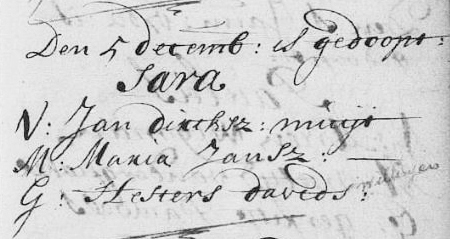 Den 5 decemb: is gedoopt:
Sara
V: Jan dirchsz: muijt
M: Maria Jansz: —
G: Hesters daveds: